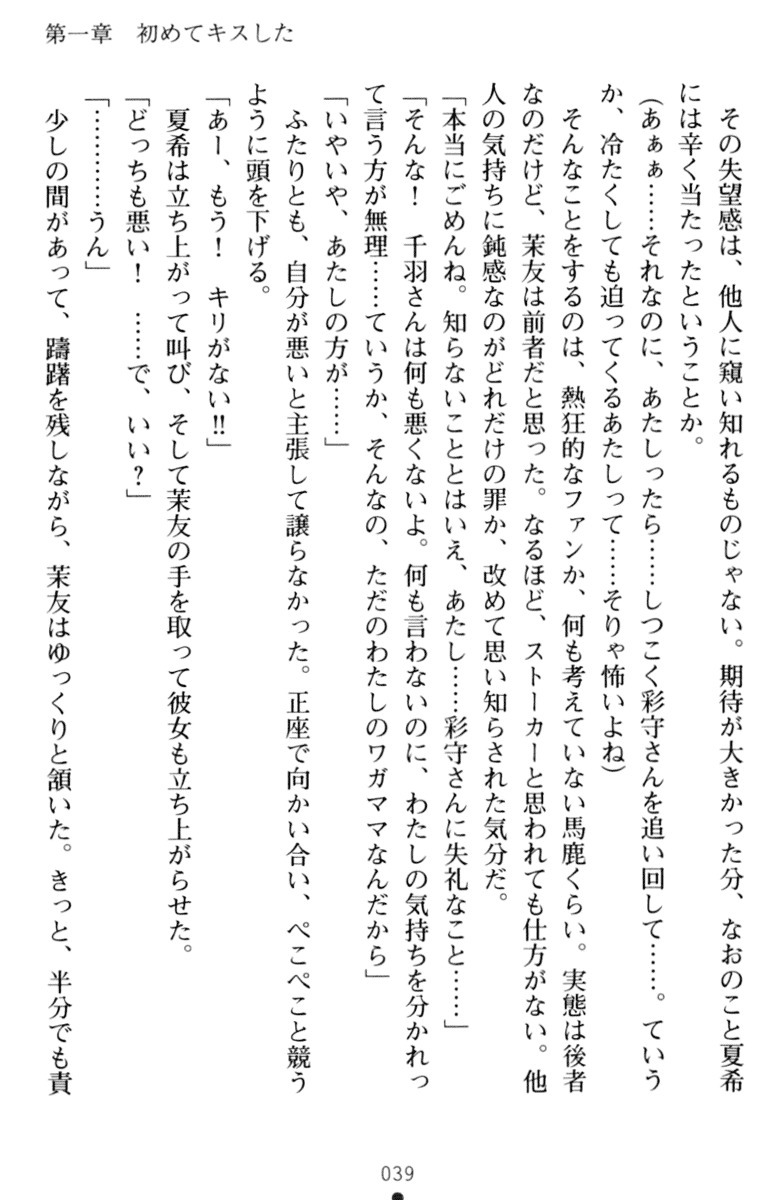 第一章　初めてキスした
　その失望感は、他人に窺い知れるものじゃない。期待が大きかった分、なおのこと夏希
には辛く当たったということか。
（あぁぁ……それなのに、あたしったら……しつこく彩守さんを追い回して……。ていう
か、冷たくしても迫ってくるあたしって……そりゃ怖いよね）
　そんなことをするのは、熱狂的なファンか、何も考えていない馬鹿くらい。実態は後者
なのだけど、茉友は前者だと思った。なるほど、ストーカーと思われても仕方がない。他
人の気持ちに鈍感なのがどれだけの罪か、改めて思い知らされた気分だ。
「本当にごめんね。知らないこととはいえ、あたし……彩守さんに失礼なこと……」
「そんな！　千羽さんは何も悪くないよ。何も言わないのに、わたしの気持ちを分かれっ
て言う方が無理……ていうか、そんなの、ただのわたしのワガママなんだから」
「いやいや、あたしの方が……」
　ふたりとも、自分が悪いと主張して譲らなかった。正座で向かい合い、ぺこぺこと競う
ように頭を下げる。
「あー、もう！　キリがない!!」
　夏希は立ち上がって叫び、そして茉友の手を取って彼女も立ち上がらせた。
「どっちも悪い！　……で、いい？」
「…………うん」
　少しの間があって、躊躇を残しながら、茉友はゆっくりと頷いた。きっと、半分でも責
039